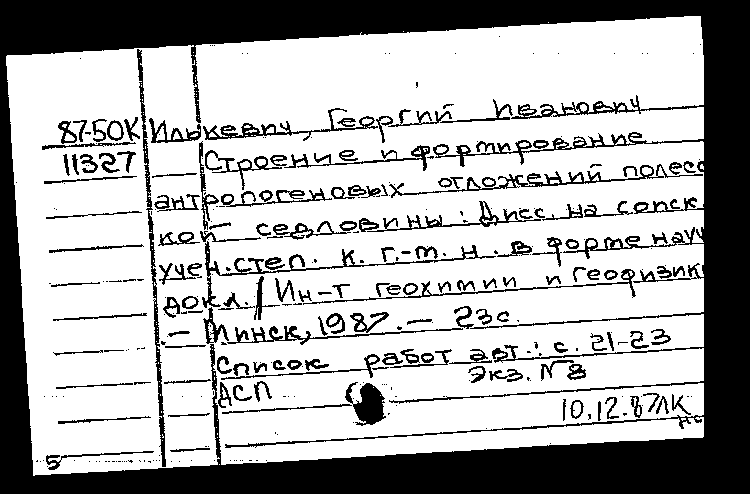 87-50К Илькевич, Георгий Иванович
11327 Строение и формирование
антропогеновых отложений полесс
кой седловины : Дисс. на соиск.
учен. степ. к. г.-м. н. в форме науч
докл. / Ин-т геохимии и геофизики
. — Минск, 1987. — 23с.
Список работ авт.: с. 21-23
АСП Экз. №3
10.12.87 ЛК
5